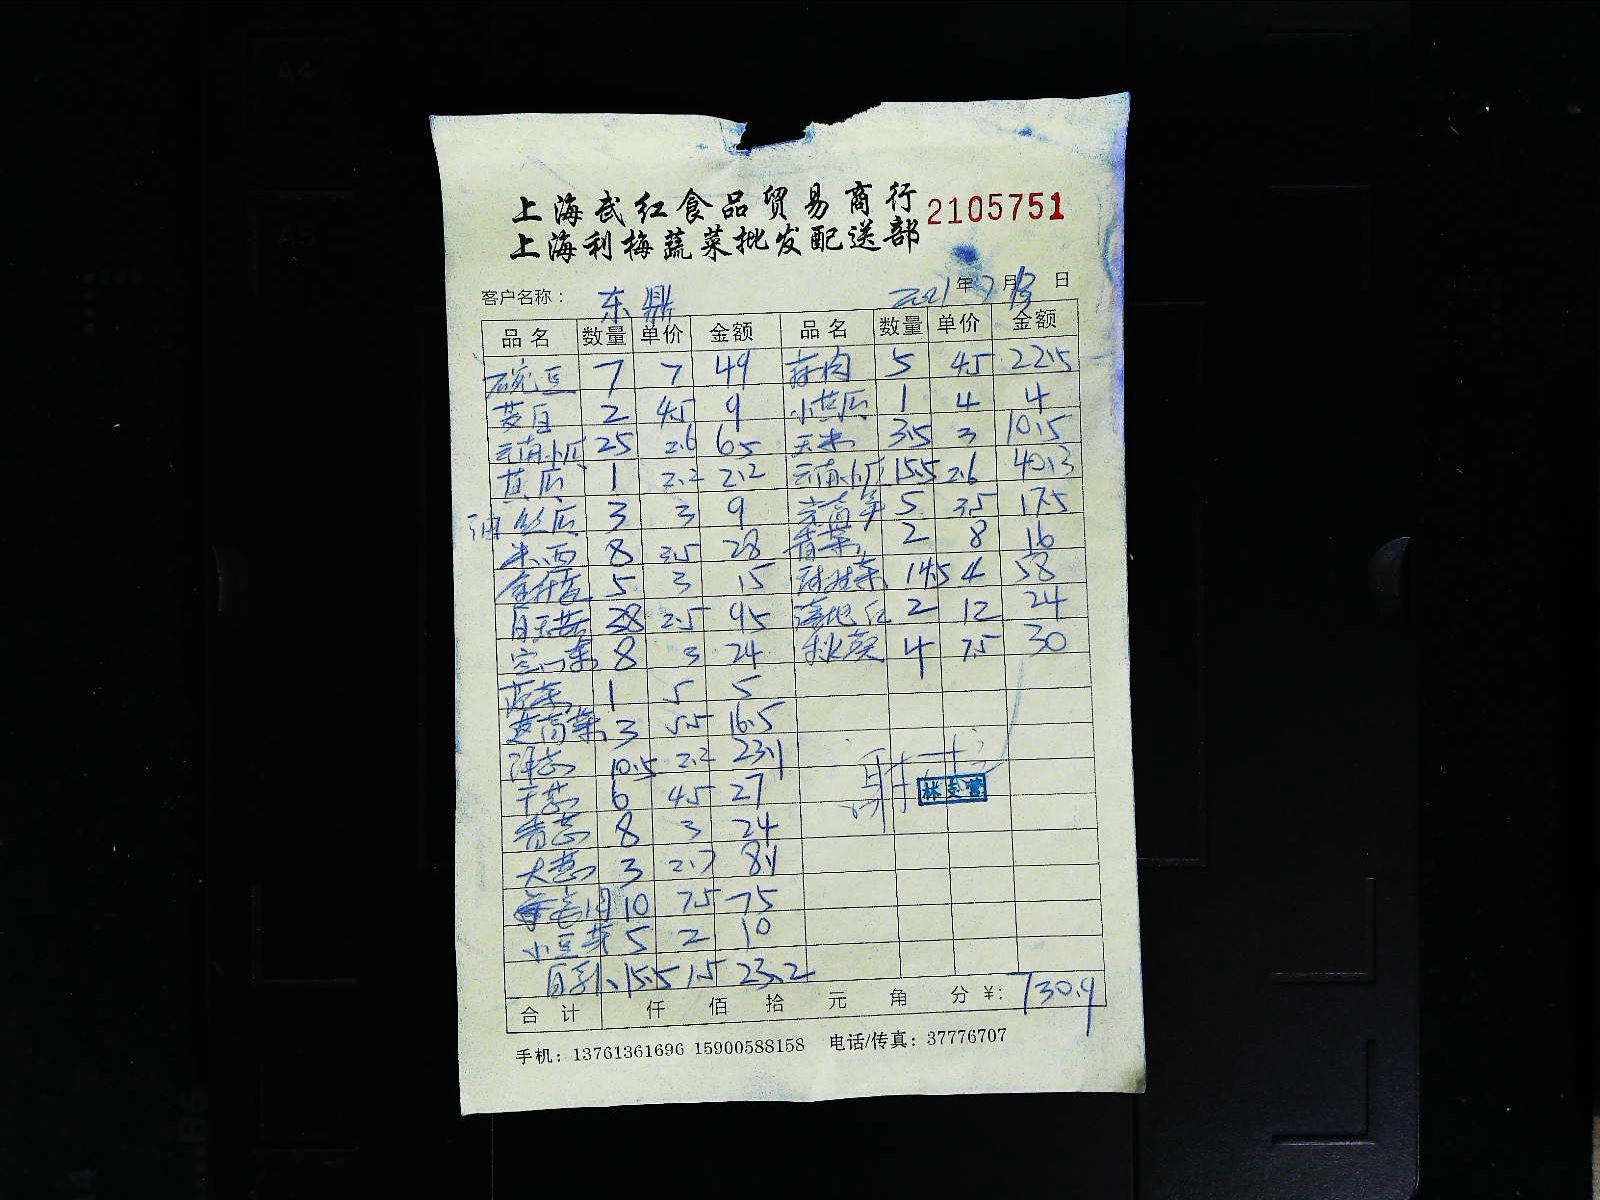 上海武红食品贸易商行
2105751
上海利梅蔬菜批发配送部
客户名称： 东鼎 2021年7月 日
品名 数量 单价 金额 品名 数量 单价 金额
豌豆 7 7 49 蒜肉 5 4.5 22.5
2 4.5 9 小黄瓜 1 4 4
云南小瓜 25 2.6 65 玉米 3.5 3 10.5
黄瓜 1 2.2 2.2 云南小瓜 15.5 2.6 40.3
油丝瓜 3 3 9 莴笋 5 3.5 17.5
米西 8 3.5 28 香菜 2 8 16
5 3 15 14.5 4 58
38 2.5 95 2 12 24
8 3 24 秋葵 4 7.5 30
1 5 5
3 5.5 16.5
洋芯 10.5 2.2 23.1
6 4.5 27
8 3 24
大葱 3 2.7 8.1
10 7.5 75
小豆芽 5 2 10
15.5 1.5 23.2
合计 仟 佰 拾 元 角 分 ¥: 730.9
手机：13761361696 15900588158 电话/传真：37776707